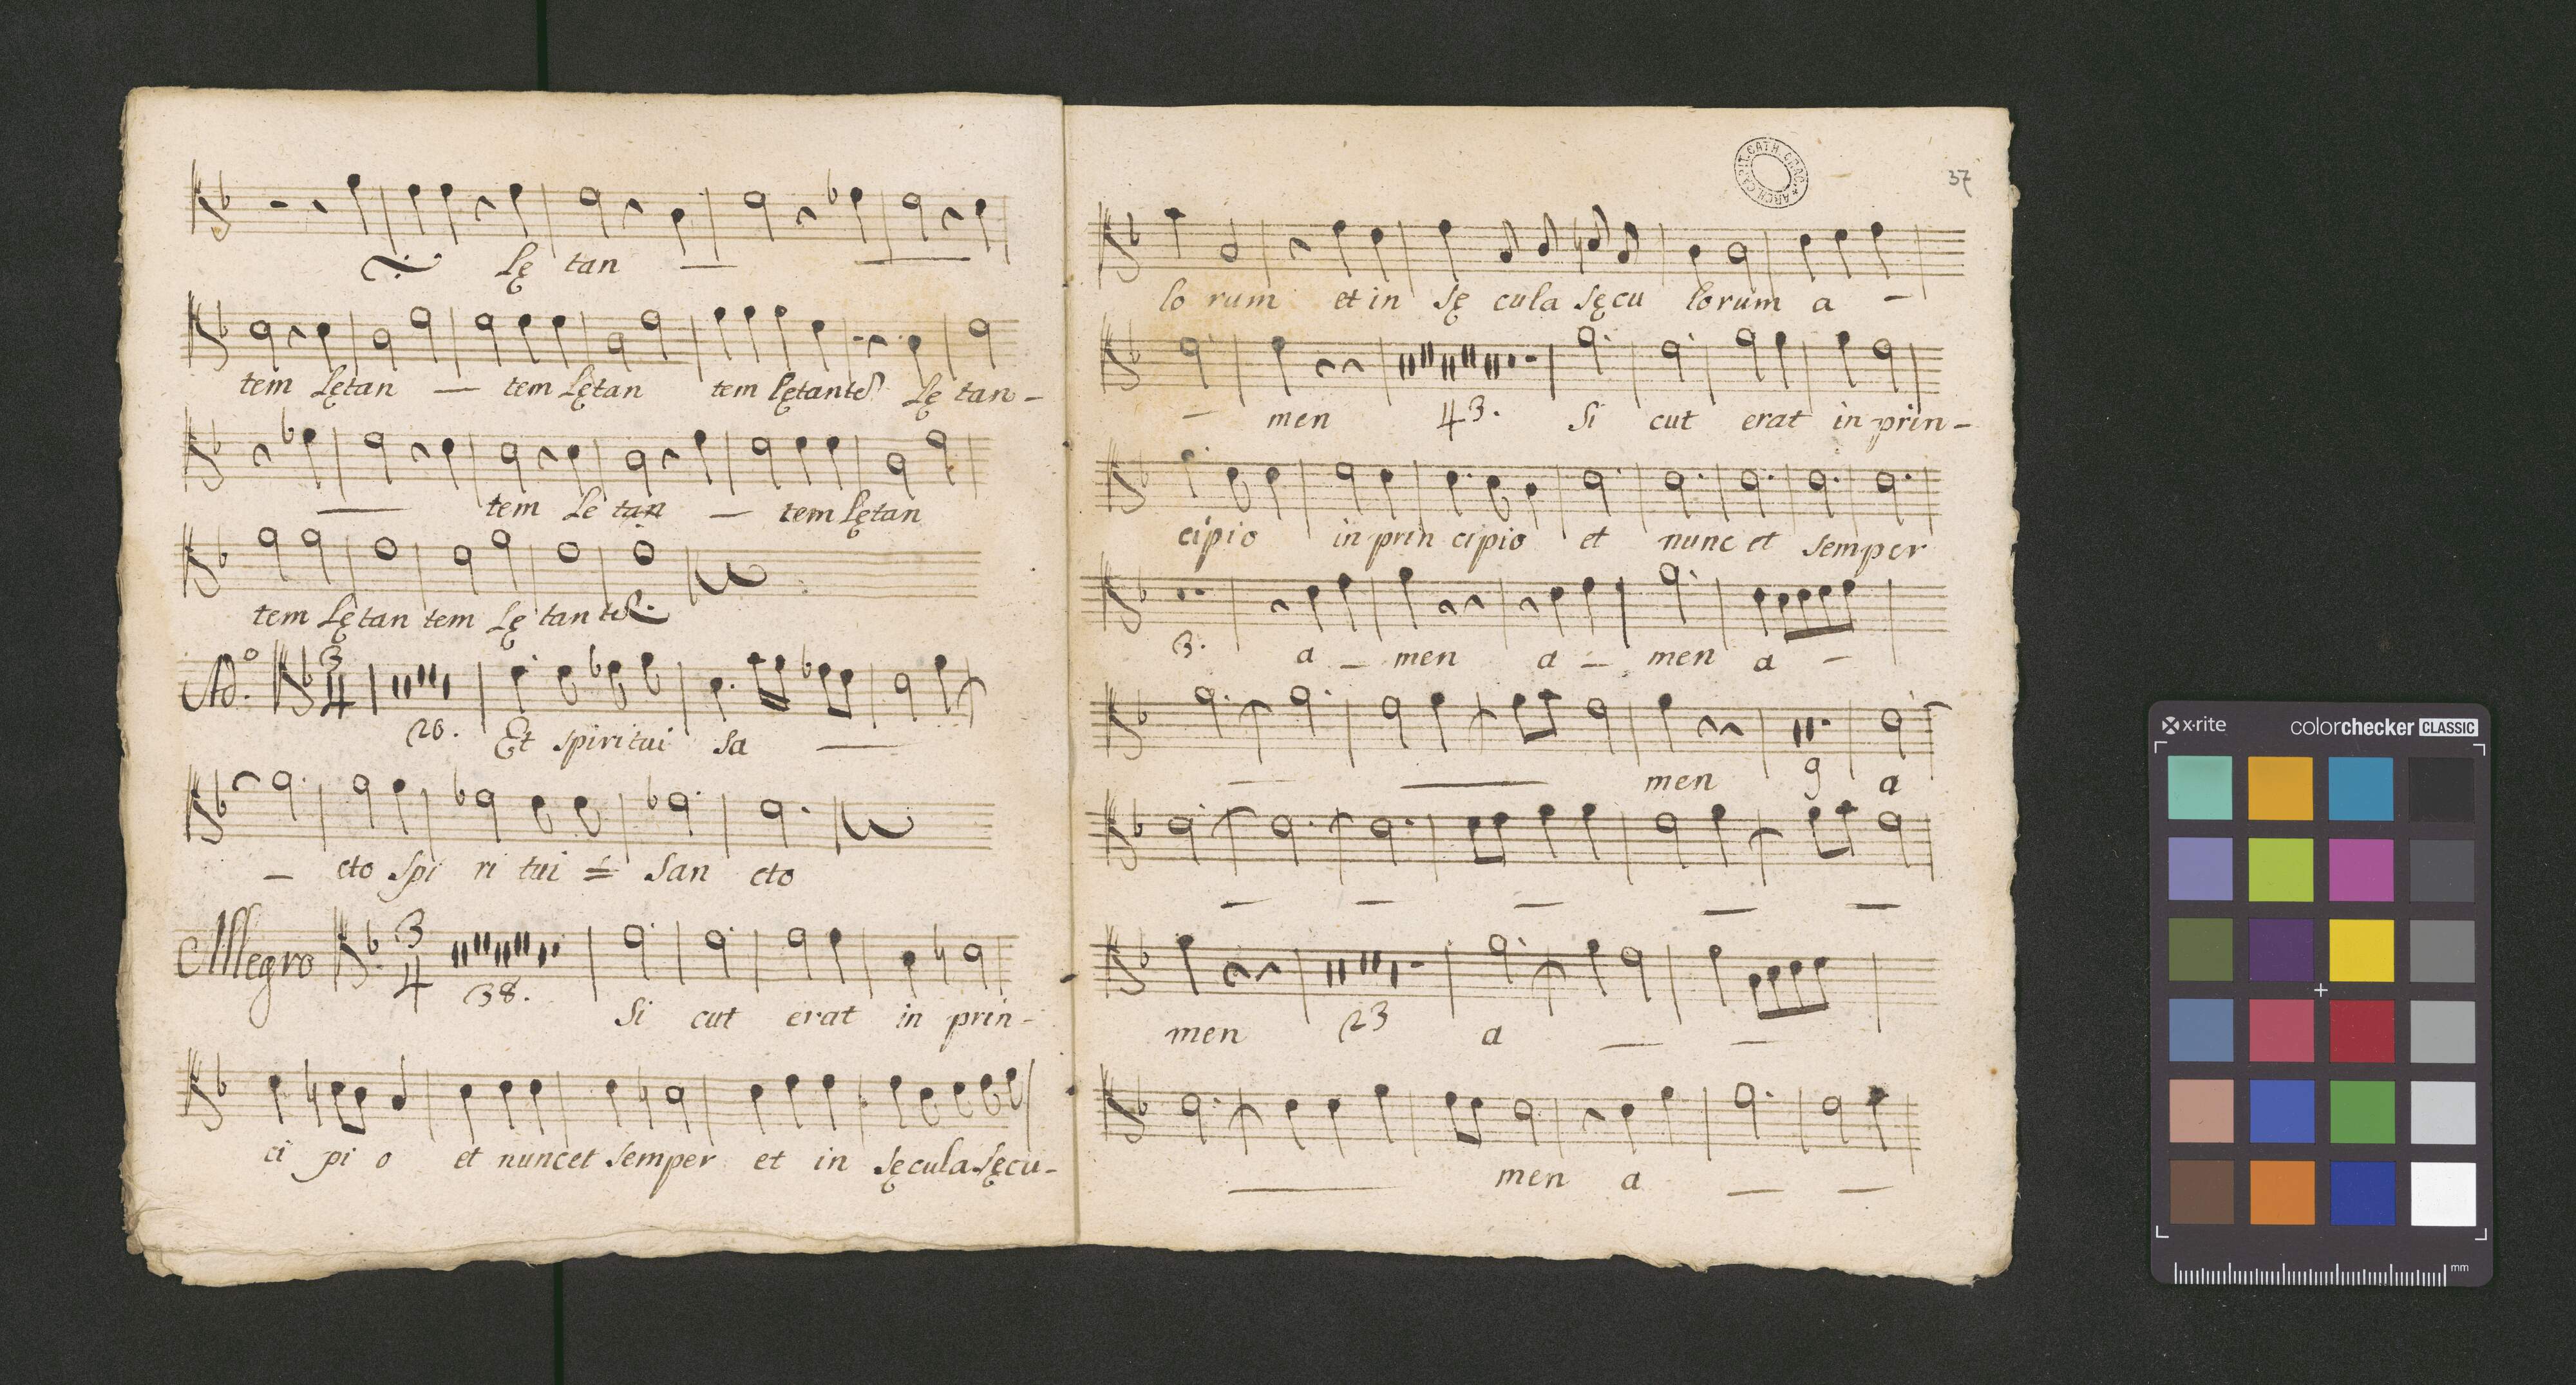 lę tan
tem lętan — tem lętan tem lętantes lę tan-
tem le tan — tem lętan
tem lętan tem lę tantes.
Ad.o 3 4
20. Et spiritui sa
— cto spi ri tui = san cto
Allegro 3 4
38. Si cut erat in prin-
ci pi o et nunc et semper et in sęcula sęcu-
ARCH. CAPIT. CATH. CRAC.
37
lo rum et in sę cula sęcu lorum a —
— men 43. Si cut erat in prin-
cipio in prin cipio et nunc et semper
3. a — men a — men a —
men 9 a
men 23 a
men a
x·rite colorchecker CLASSIC
mm